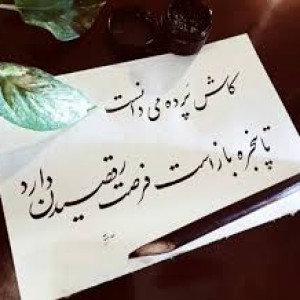 کاش پَرده می دانست
تا پنجره باز است فرصت رقصیدن دارد